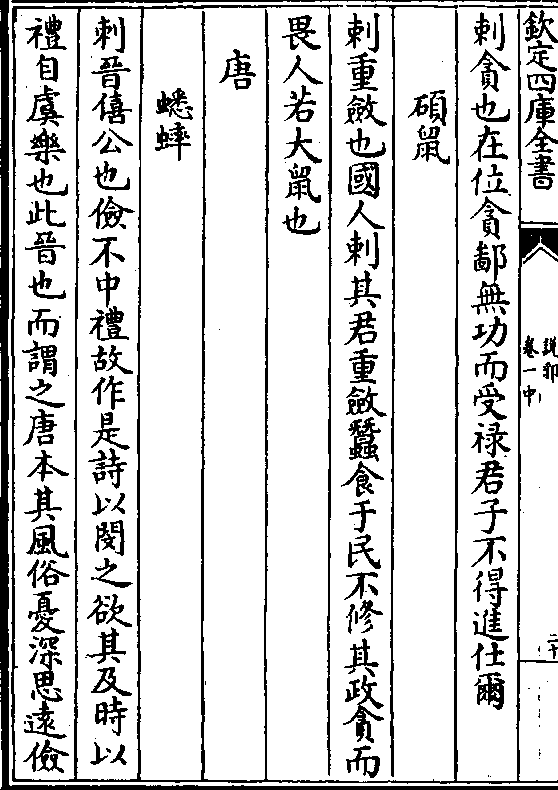 欽定四庫全書
說郛
卷一中
二十
刺貪也在位貪鄙無功而受祿君子不得進仕爾
碩鼠
刺重斂也國人刺其君重斂蠶食于民不修其政貪而
畏人若大鼠也
唐
蟋蟀
刺晉僖公也儉不中禮故作是詩以閔之欲其及時以
禮自虞樂也此晉也而謂之唐本其風俗憂深思遠儉